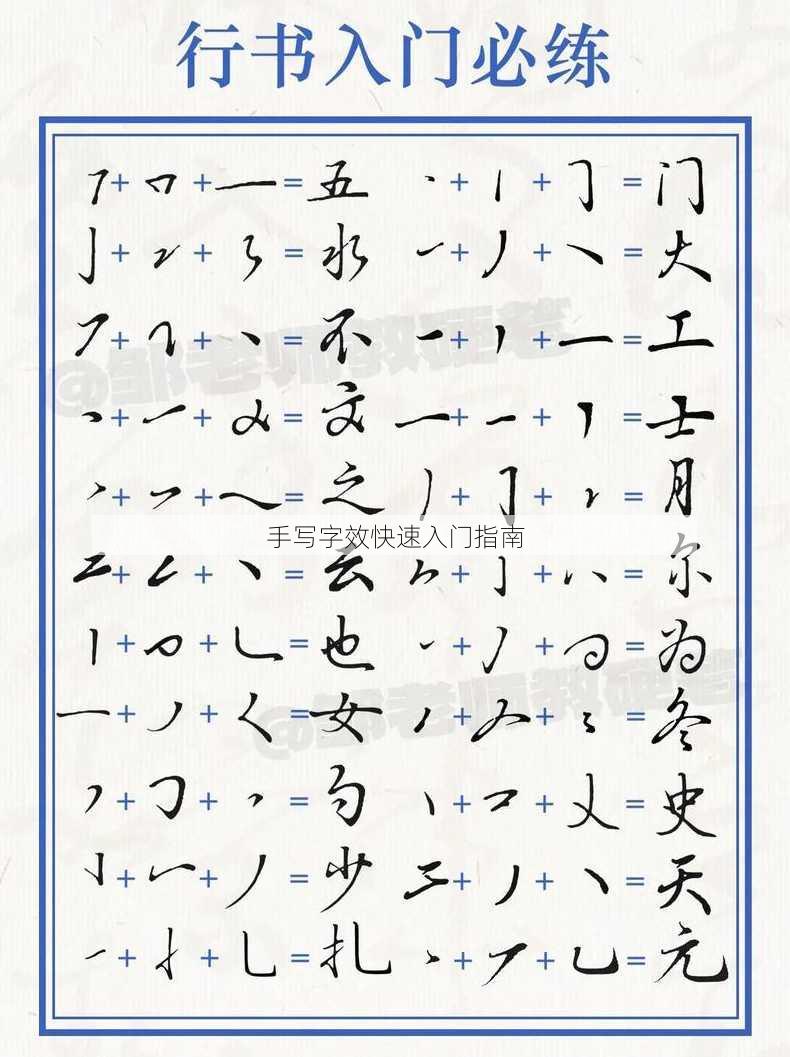 行书入门必练
++一=五 ++=门
++=水 ++=大
++=不 ++一=工
++=文 一++=士
++=之 ++=月
@邹老师教硬笔
手写字效快速入门指南
++=云 ++=尔
++=也 ++=为
一++=女 ++=冬
@邹老师教硬笔
++=勺 ++=史
++=少 ++=天
++=扎 ++=元